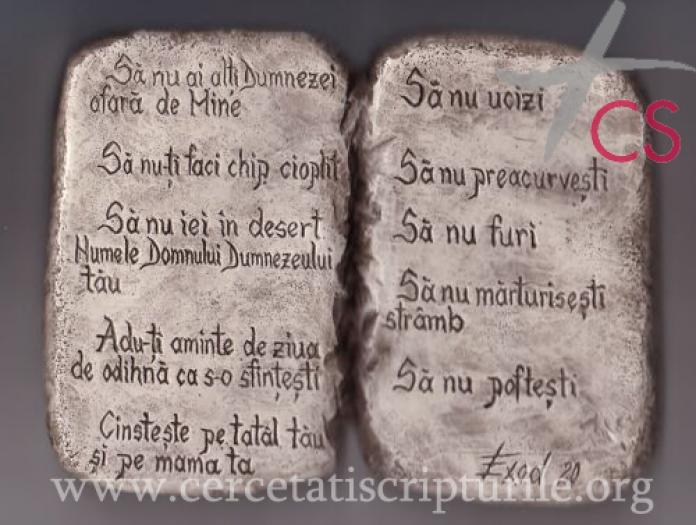 Să nu ai alti Dumnezei
afară de Mine
Să nu-ți faci chip cioplit
Să nu iei în desert
Numele Domnului Dumnezeului
tău
Adu-ți aminte de ziua
de odihnă ca s-o sfințești
Cinstește pe tatăl tău
și pe mama ta
Să nu ucizi
Să nu preacurvești
Să nu furi
Să nu mărturisești
strâmb
Să nu poftești
Exod 20
CS
www.cercetatiscripturile.org